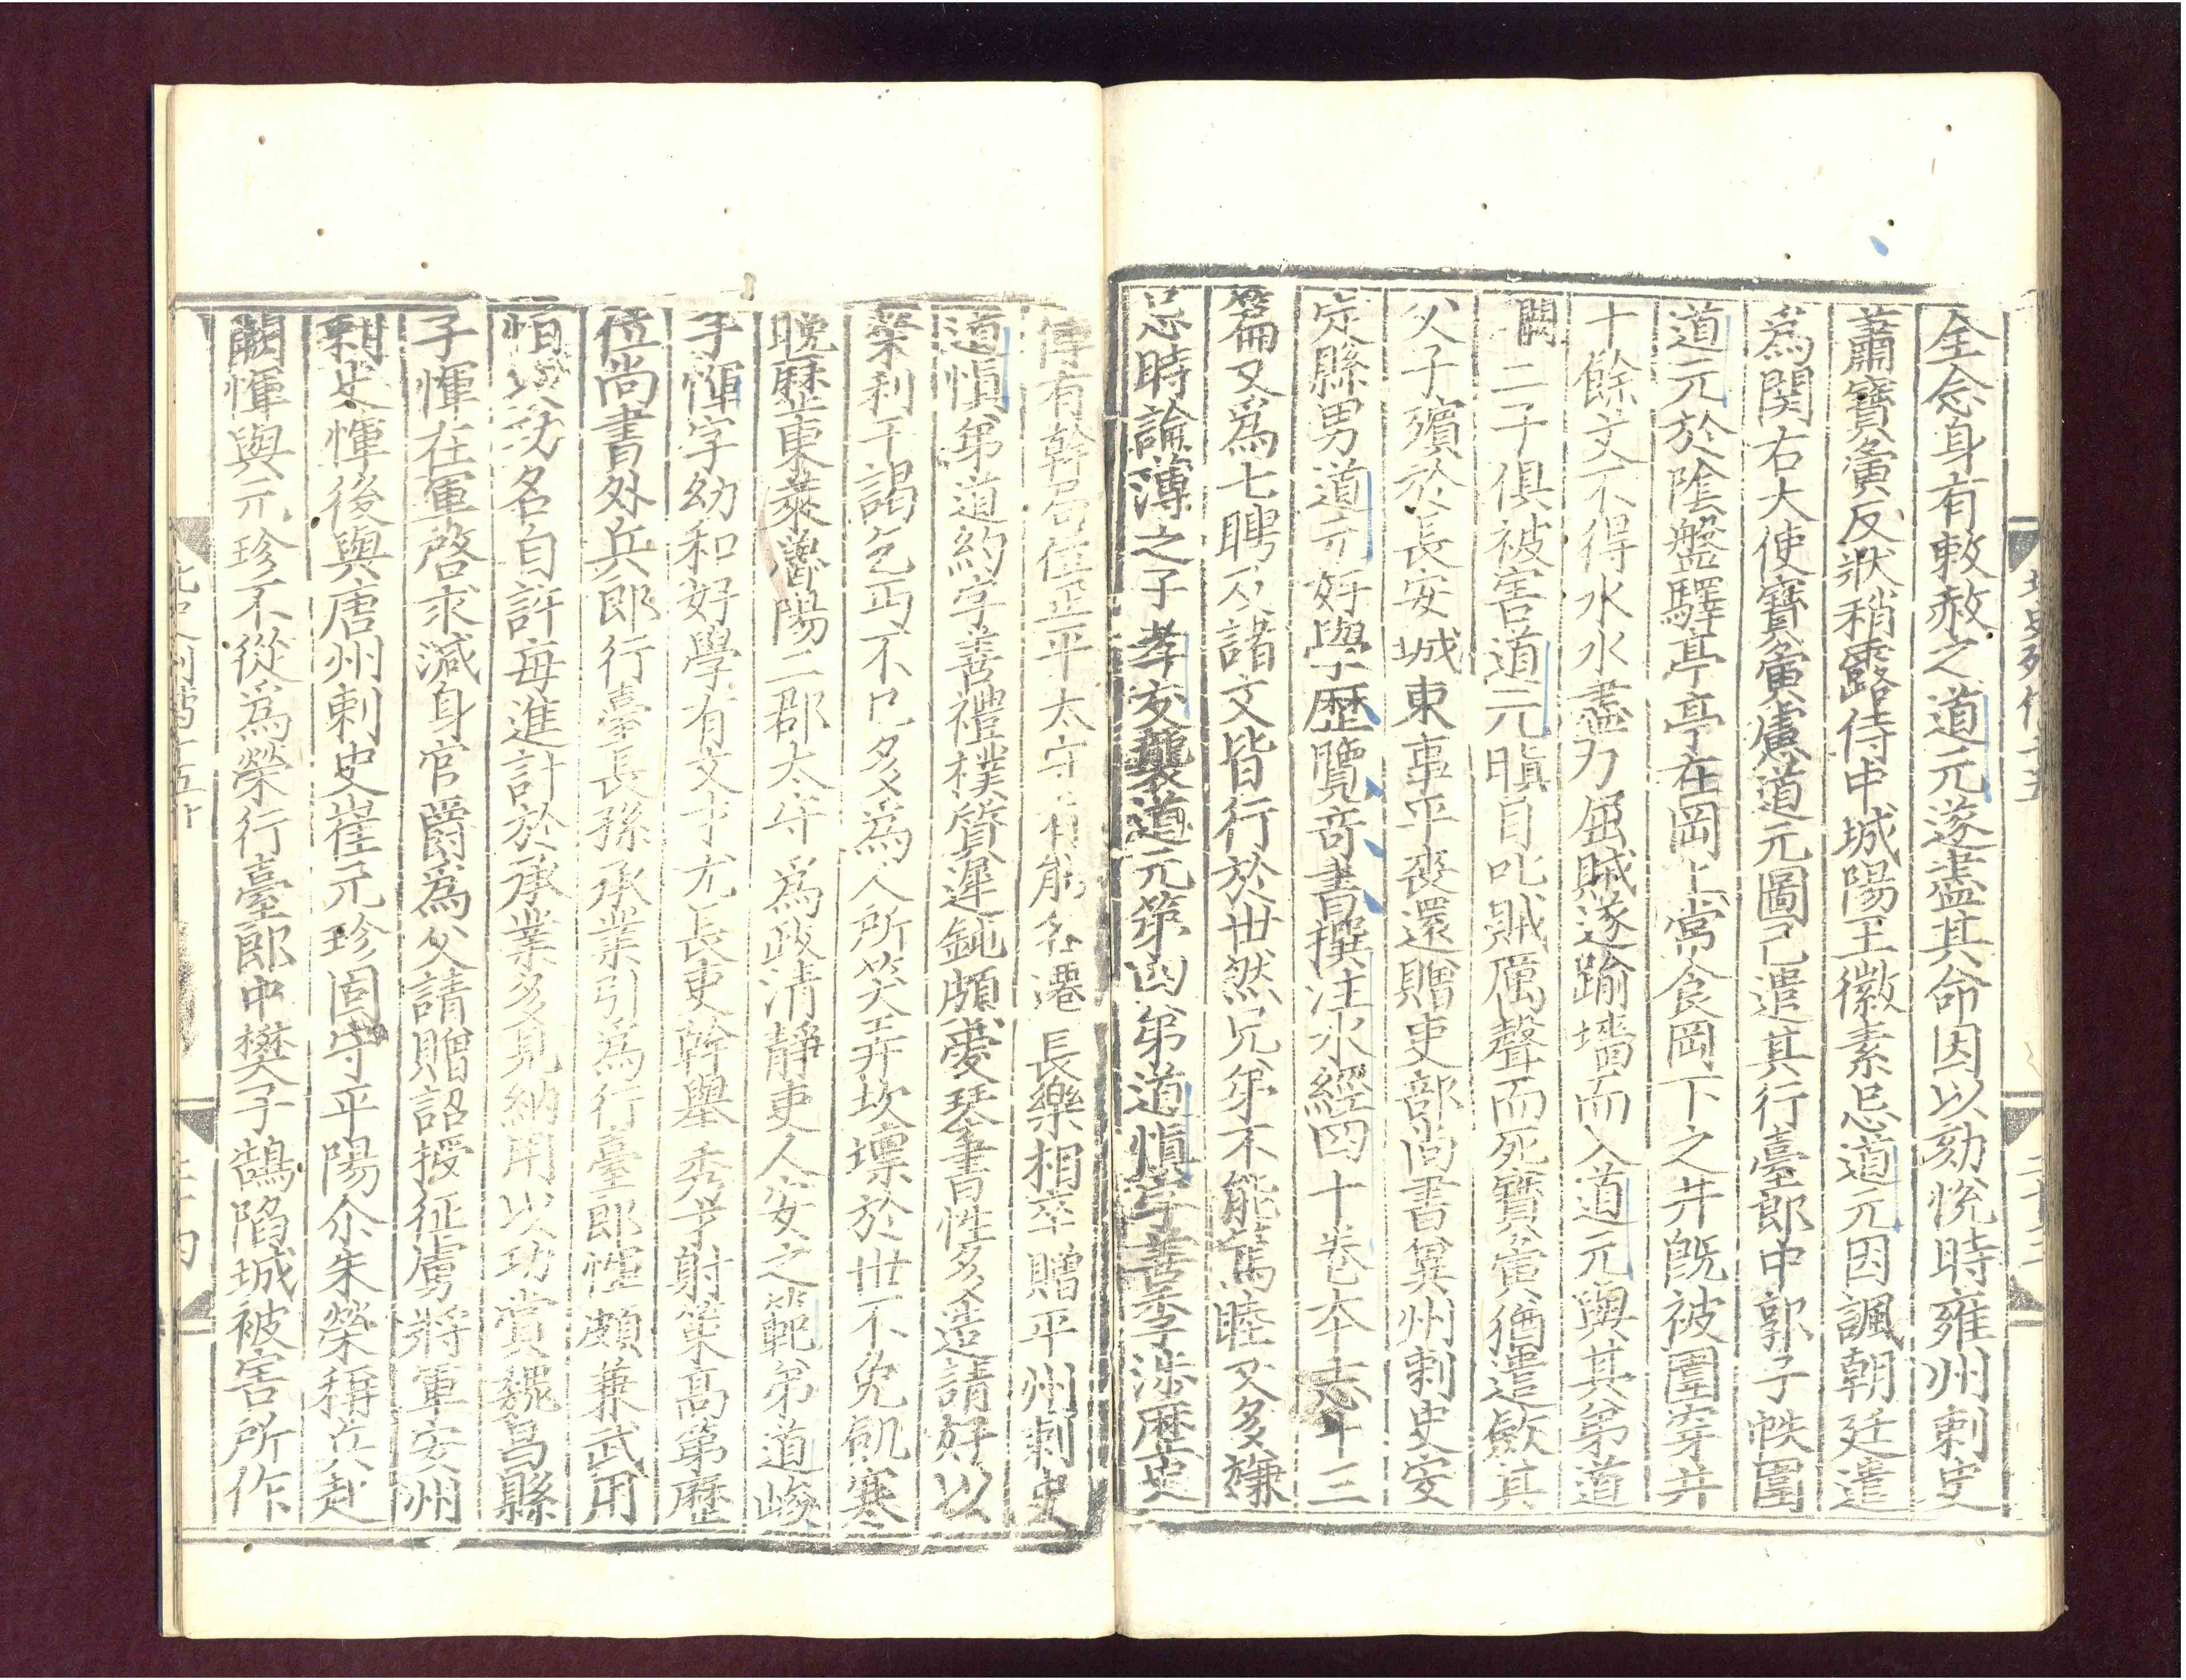 全念身有敕赦之道元遂盡其命因以劾悅時雍州刺史
蕭寶夤反狀稍露侍中城陽王徽素忌道元因諷朝廷遣
為關右大使寶夤慮道元圖己遣其行臺郎中郭子帙圍
道元於陰盤驛亭亭在岡上常食岡下之井既被圍穿井
十餘丈不得水水盡力屈賊遂踰墻而入道元與其弟道
闕二子俱被害道元瞋目叱賊厲聲而死寶夤猶遣斂其
父子殯於長安城東事平喪還贈吏部尚書兾州刺史安
定縣男道元好學歷覽奇書撰注水經四十卷本志十三
篇又爲七聘及諸文皆行於世然兄弟不能篤睦又多嫌
忌時論薄之子孝友襲道元第四弟道愼字善季涉歷史
傳有幹局位正平太守有能名遷長樂相卒贈平州刺史
道愼弟道約字善禮樸質遲鈍頗愛琴書性多造請好以
榮利干謁乞丐不已多爲人所笑弄坎壈於世不免飢寒
晚歷東萊魯陽二郡太守爲政清靜吏人安之範弟道峻
子惲字幼和好學有文才尤長吏幹舉秀才射策高第歷
位尚書外兵郎行臺長孫承業引爲行臺郎惲頗兼武用
恒以功名自許每進計於承業多見納用以功賞魏昌縣
子惲在軍啓求減身官爵爲父請贈詔授征虜將軍安州
刺史惲後與唐州刺史崔元珍固守平陽尒朱榮稱兵赴
闕惲與元珍不從爲榮行臺郎中樊子鵠陷城被害所作